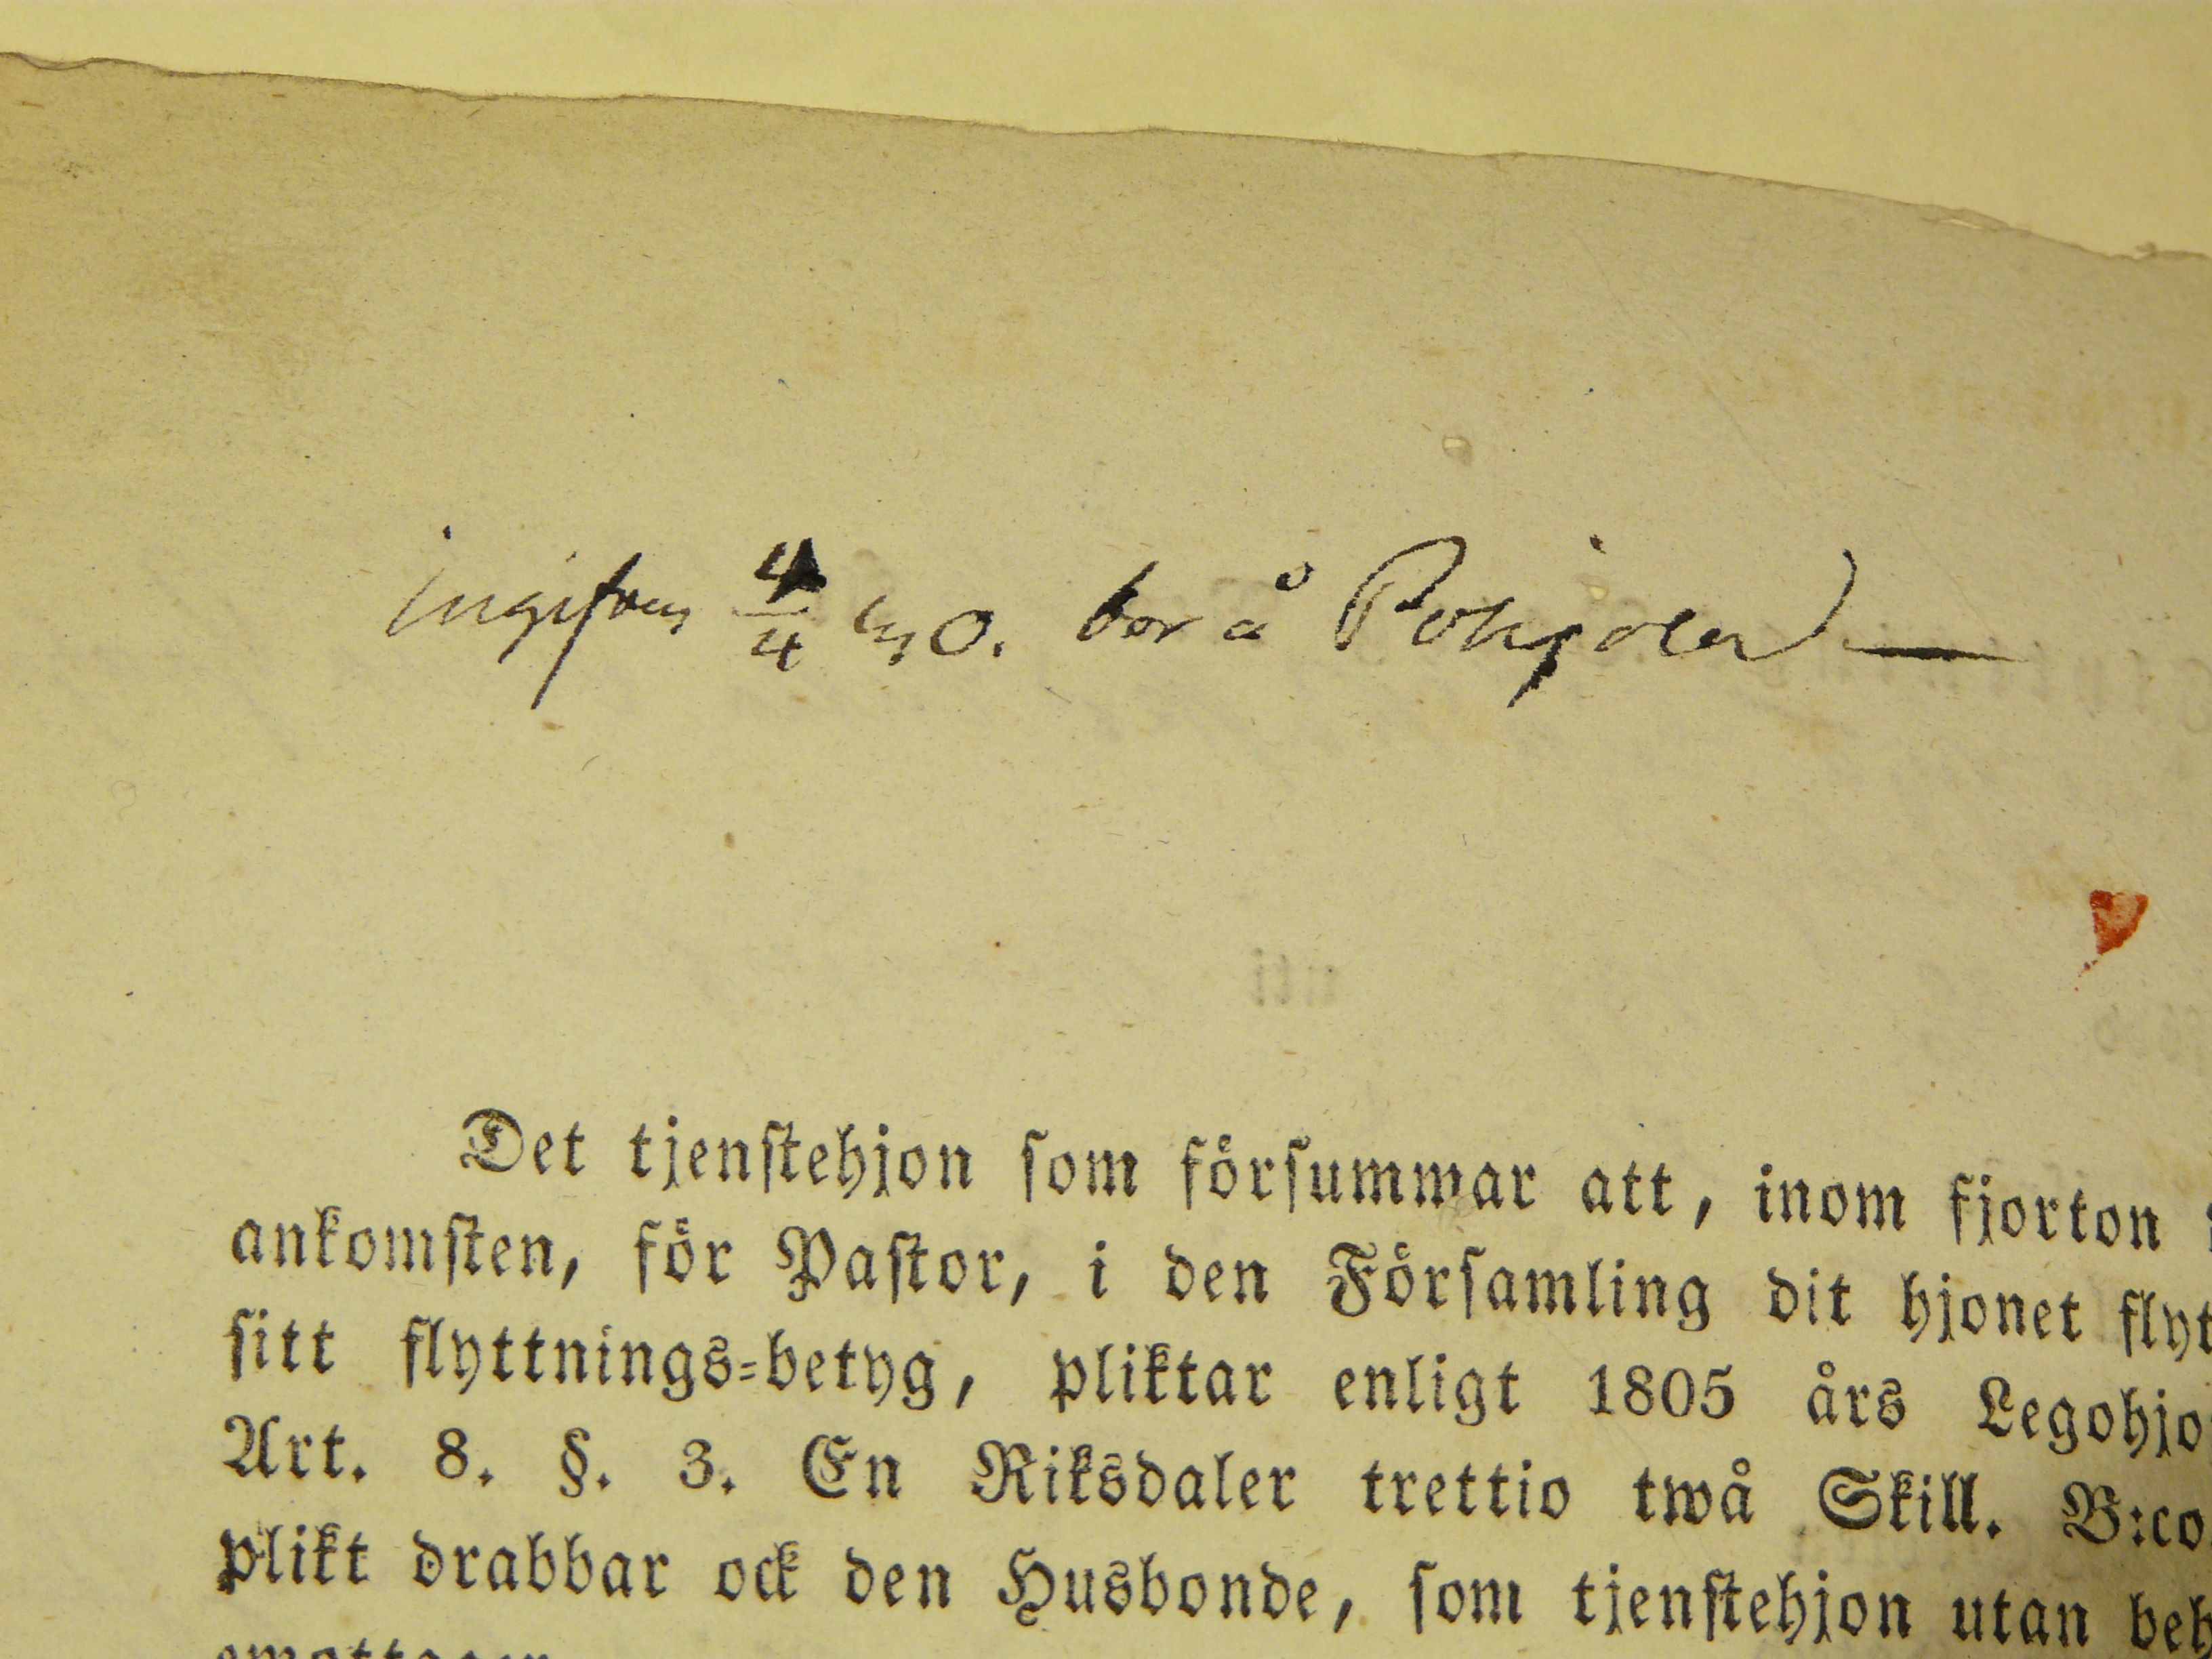 4/4 bor å Pohjola
uti
Det tjenstehjon som försummar att, inom fjorton
ankomsten, för Pastor, i den Församling dit hjonet flyt
sitt flyttnings-betyg, pliktar enligt 1805 års Legohjo
Art. 8. §. 3. En Riksdaler trettio twå Skill. B:co
plikt drabbar ock den Husbonde, som tjenstehjon utan beh
emottager